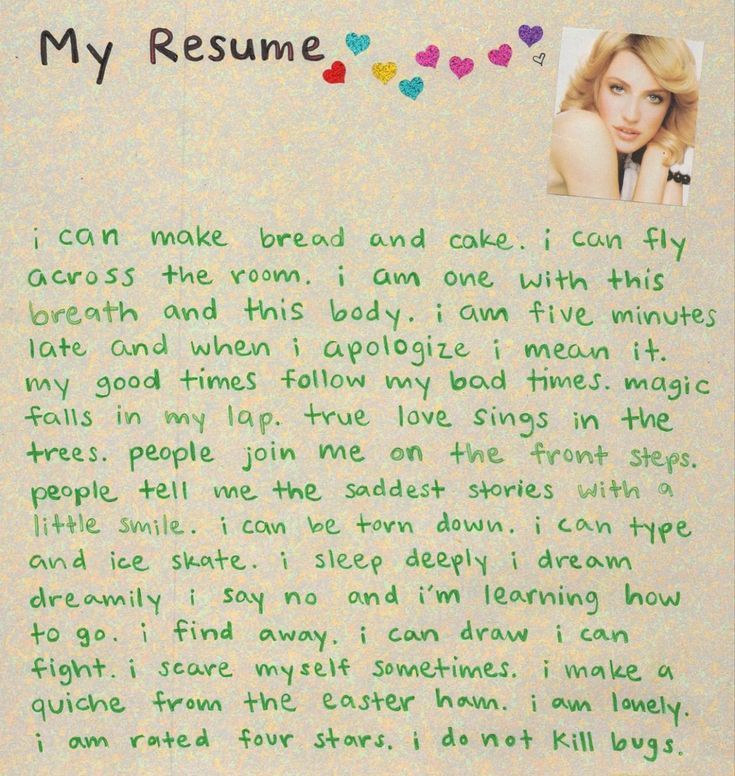 My Resume
i can make bread and cake. i can fly
across the room. i am one with this
breath and this body. i am five minutes
late and when i apologize i mean it.
my good times follow my bad times. magic
falls in my lap. true love sings in the
trees. people join me on the front steps.
people tell me the saddest stories with a
little smile. i can be torn down. i can type
and ice skate. i sleep deeply i dream
dreamily i say no and i'm learning how
to go. i find away. i can draw i can
fight. i scare myself sometimes. i make a
quiche from the easter ham. i am lonely.
i am rated four stars. i do not kill bugs.